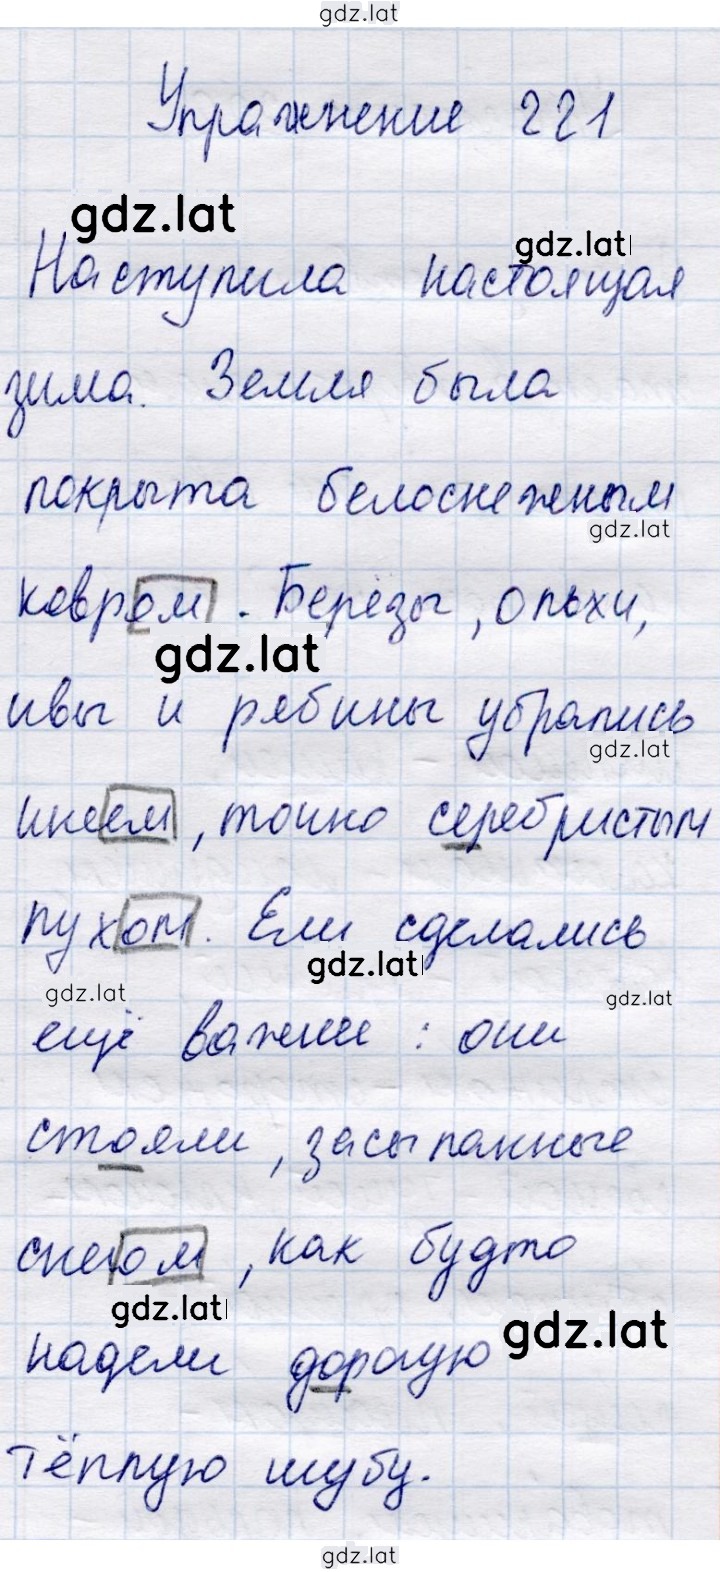 gdz.lat
Упражнение 221
gdz.lat
gdz.lat
Наступила настоящая
зима. Земля была
покрыта белоснежным
gdz.lat
ковром. Берёзы, ольхи,
gdz.lat
ивы и рябины убрались
gdz.lat
инеем, точно серебристым
пухом. Ели сделались
gdz.lat
gdz.lat
gdz.lat
ещё важнее: они
стояли, засыпанные
снегом, как будто
gdz.lat
gdz.lat
надели дорогую
тёплую шубу.
gdz.lat